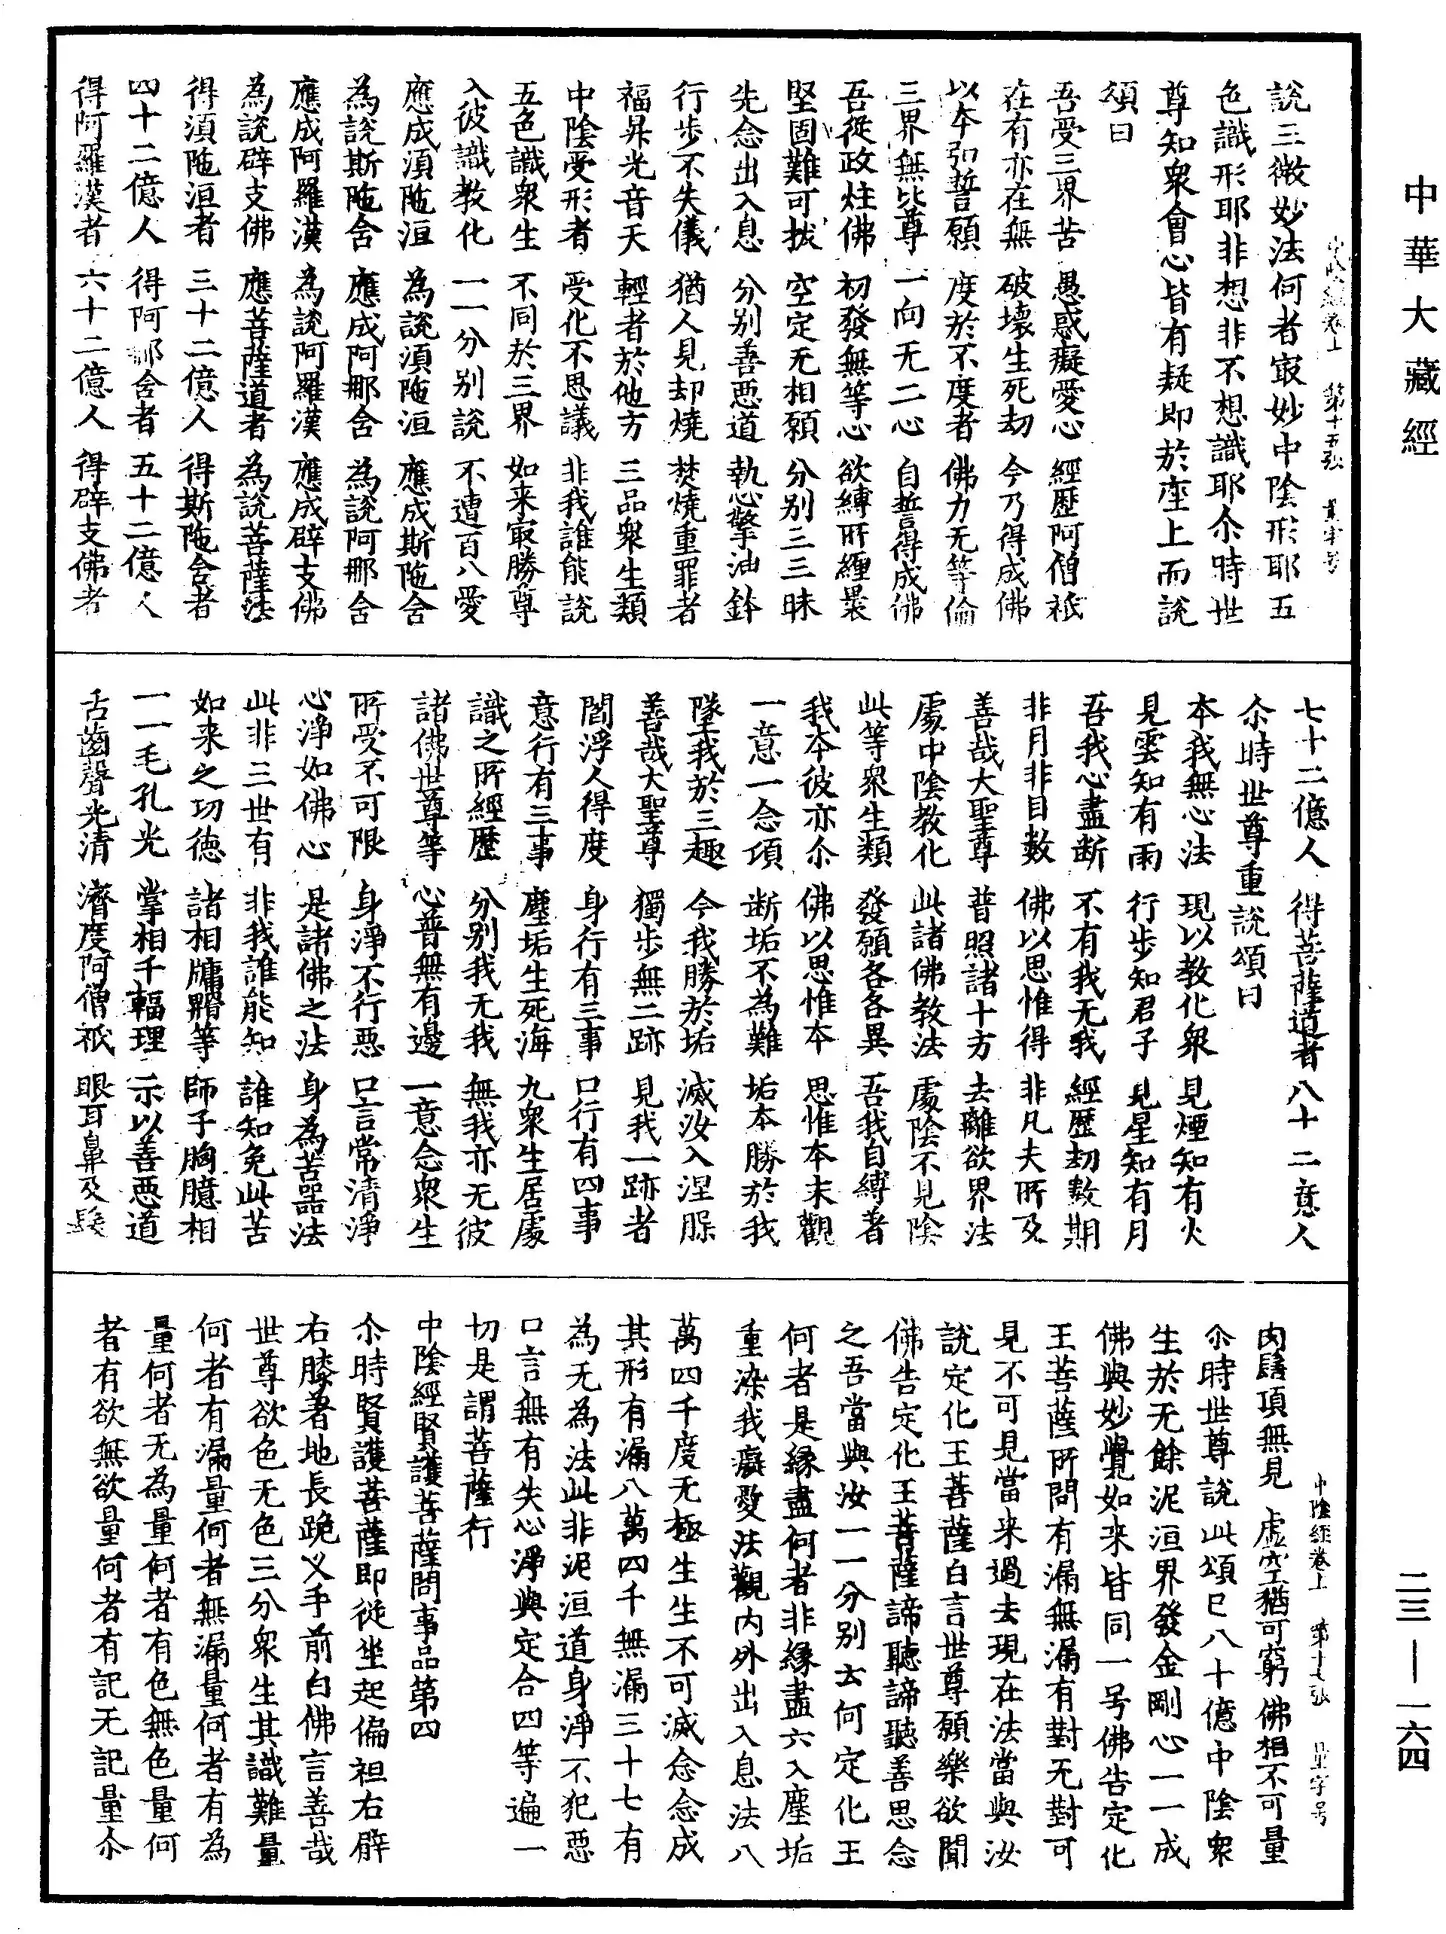 中華大藏經
說三微妙法何者㝡妙中陰形耶五
色識形耶非想非不想識耶尒時世
尊知衆會心皆有疑即於座上而說
頌曰
吾受三界苦 愚惑癡愛心 經歷阿僧祇
在有亦在無 破壞生死劫 今乃得成佛
以本弘誓願 度於不度者 佛力无等倫
三界無比尊 一向无二心 自誓得成佛
吾從政炷佛 初發無等心 欲縛所纏褁
堅固難可拔 空定无相願 分別三三昧
先念出入息 分別善惡道 執心擎油鉢
行步不失儀 猶人見却燒 焚燒重罪者
福昇光音天 輕者於他方 三品衆生類
中陰受形者 受化不思議 非我誰能說
五色識衆生 不同於三界 如来㝡勝尊
入彼識教化 一一分別說 不遭百八愛
應成須陁洹 為說須陁洹 應成斯陁舍
為說斯陁舍 應成阿那舍 為說阿那舍
應成阿羅漢 為說阿羅漢 應成辟支佛
為說辟支佛 應菩薩道者 為說菩薩法
得須陁洹者 三十二億人 得斯陁舍者
四十二億人 得阿那舍者 五十二億人
得阿羅漢者 六十二億人 得辟支佛者
七十二億人 得菩薩道者 八十二意人
尒時世尊重說頌曰
本我無心法 現以教化衆 見煙知有火
見雲知有雨 行步知君子 見星知有月
吾我心盡断 不有我无我 經歷劫數期
非月非目數 佛以思惟得 非凡夫所及
善哉大聖尊 普照諸十方 去離欲界法
處中陰教化 此諸佛教法 處陰不見陰
此等衆生類 發願各各異 吾我自縛著
我本彼亦尒 佛以思惟本 思惟本末觀
一意一念項 断垢不為難 垢本勝於我
墜我於三趣 今我勝於垢 滅汝入涅槃
善哉大聖尊 獨步無二跡 見我一跡者
閻浮人得度 身行有三事 口行有四事
意行有三事 塵垢生死海 九衆生居處
識之所經歷 分別我无我 無我亦无彼
諸佛世尊等 心普無有邊 一意念衆生
所受不可限 身淨不行惡 口言常清淨
心淨如佛心 是諸佛之法 身為苦器法
此非三世有 非我誰能知 誰知免此苦
如来之功德 諸相牗𦜛等 師子胸臆相
一一毛孔光 掌相千輻理 示以善惡道
舌齒聲光清 濟度阿僧祇 眼耳鼻及髮
中陰經卷上 第十七張 量字号
肉髻項無見 虛空猶可窮 佛相不可量
尒時世尊說此頌已八十億中陰衆
生於无餘泥洹界發金剛心一一成
佛與妙覺如来皆同一号佛告定化
王菩薩所問有漏無漏有對无對可
見不可見當来過去現在法當與汝
說定化王菩薩白言世尊願樂欲聞
佛告定化王菩薩諦聽諦聽善思念
之吾當與汝一一分別云何定化王
何者是緣盡何者非緣盡六入塵垢
重染我癡愛法觀內外出入息法八
萬四千度无極生生不可滅念念成
其形有漏八萬四千無漏三十七有
為无為法此非泥洹道身淨不犯惡
口言無有失心淨與定合四等遍一
切是謂菩薩行
中陰經賢護菩薩問事品第四
尒時賢護菩薩即從坐起偏袒右臂
右膝著地長跪叉手前白佛言善哉
世尊欲色无色三分衆生其識難量
何者有漏量何者無漏量何者有為
量何者无為量何者有色無色量何
者有欲無欲量何者有記无記量尒
二三—一六四